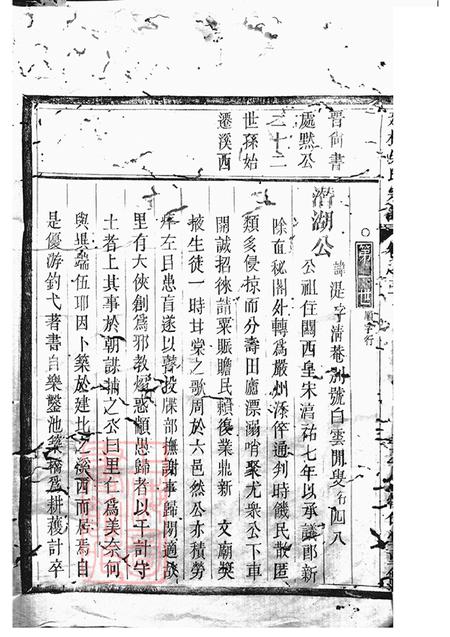 晋尚書
處默公
二十二
世孫始
遷溪西
○
第一世
順字行
潛湖公
諱湜字清菴別號白雲閒叟行四八
公祖在閩西皇宋淳祐七年以承議郎新
除直秘閣外轉為嚴州添倅通判時饑民散匿
類多侵掠而分壽田廬漂溺哨聚尤衆公下車
開誠招徠請粟賑贍民頼復業鼎新 文廟奬
掖生徒一時甘棠之歌周於六邑然公亦積勞
左目患盲遂以養投牒部撫謝事歸閒適
里有大俠創為邪教惑顓愚歸者以千計守
土者上其事於朝謀捕之公曰里仁為美奈何
與異端伍耶因卜築於建北之溪西而居焉自
是優游釣弋著書自樂鑿池築為耕穫計卒